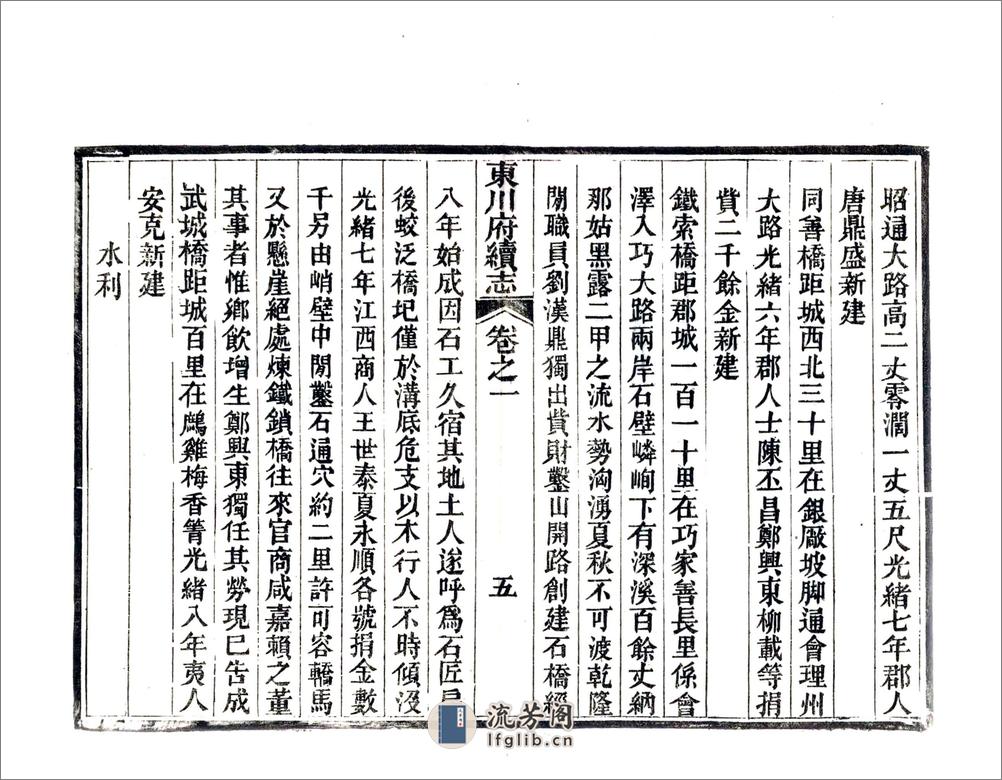 昭通大路高二丈零濶一丈五尺光緒七年郡人
唐鼎盛新建
同善橋距城西北三十里在銀厰坡脚通會理州
大路光緒六年郡人士陳丕昌鄭興東柳載等捐
貲二千餘金新建
鐵索橋距郡城一百一十里在巧家善長里係會
澤入巧大路兩岸石壁嶙峋下有深溪百餘丈納
那姑黑露二甲之流水勢洶湧夏秋不可渡乾隆
閒職員劉漢鼎獨出貲財鑿山開路創建石橋經
東川府續志
卷之一
五
八年始成因石工久宿其地土人遂呼爲石匠房
後蛟泛橋圯僅於溝底危支以木行人不時傾沒
光緒七年江西商人王世泰夏永順各號捐金數
千另由峭壁中閒鑿石通穴約二里許可容轎馬
又於懸崖絕處煉鐵鎖橋往來官商咸嘉賴之董
其事者惟鄉飲增生鄭興東獨任其勞現已告成
武城橋距城百里在鷓雞梅香箐光緒八年夷人
安克新建
水利
流芳阁
lfglib.cn